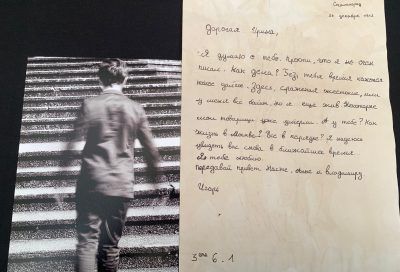 Сталинград
26 декабря 1942
Дорогая Ирина,
Я думаю о тебе. Прости, что я не
писал. Как дела? Без тебя время кажется
Здесь, сражения жестокие, или
у меня все болит, но я ещё жив. Некоторые
мои товарищи уже умерли. А у тебе? Как
жизнь в Москве? Все в порядке? Я надеюсь
увидеть вас снова в ближайшее время
тебе люблю.
передавай привет Насте, Анне и Владимиру
Игорь
6.1